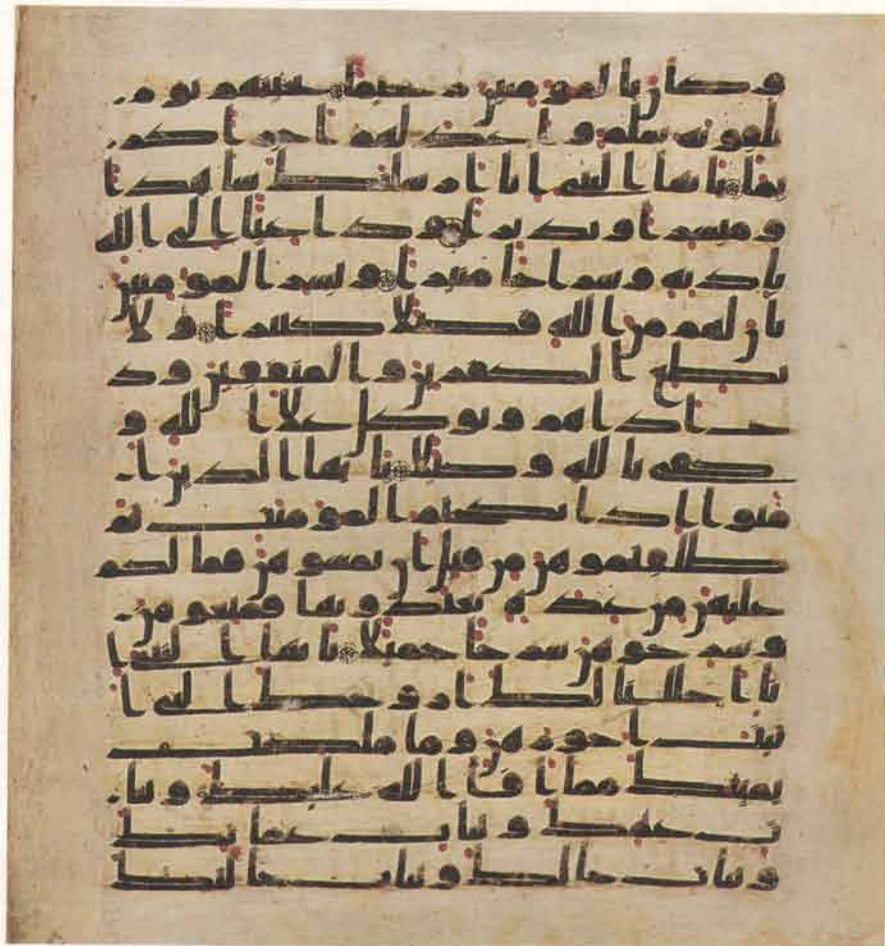 وكان بالمومنين رحيما تحيتهم يوم
يلقونه سلم واعد لهم اجرا كر
يما يايها النبي انا ارسلنك شاهدا
ومبشرا ونذيرا وداعيا الى الله
باذنه وسراجا منيرا وبشر المومنين
بان لهم من الله فضلا كبيرا ولا
تطع الكفرين والمنفقين ود
ع اذاهم وتوكل علا الله و
كفى بالله وكيلا يايها الذين ا
منوا اذا نكحتم المومنت ثم
طلقتموهن من قبل ان تمسوهن فما لكم
عليهن من عدة تعتدونها فمتعوهن
وسرحوهن سرحا جميلا يايها النبي ا
نا احللنا لك ازوجك التي ا
تيت اجورهن وما ملكت
يمينك مما افا الله عليك وبنا
ت عمك وبنات عماتك
وبنات خالك وبنات خالتك